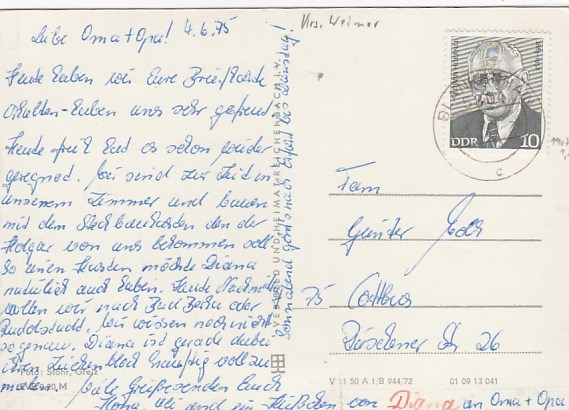 Krs. Weimar
Liebe Oma + Opa! 4.6.75
Heute haben wir Eure Brief/Karte
erhalten - haben uns sehr gefreut
Heute früh hat es schon wieder
geregnet. Wir sind zur Zeit in
unserem Zimmer und bauen
mit dem Steckbaukasten den der
Holgar von uns bekommen soll
So einen Kasten möchte Diana
natürlich auch haben. Heute Nachmitt.
wollen wir nach Bad Berka oder
Rudolstadt. Wir wissen noch nicht
so genau. Diana ist gerade dabei
ihren
voll zu
malen. Viele Grüße senden Euch
und ein Küßchen von Diana an Oma + Opa
Sonnabend geht's nach
BLANKENHAIN
c
DDR 10
VEB BILD UND HEIMAT REICHENBACH I. V.
Fam
Günter
75 Cottbus
Str. 26
Foto: Stöhr, Greiz
M
V 11 50 A 1/B 944/72 01 09 13 041